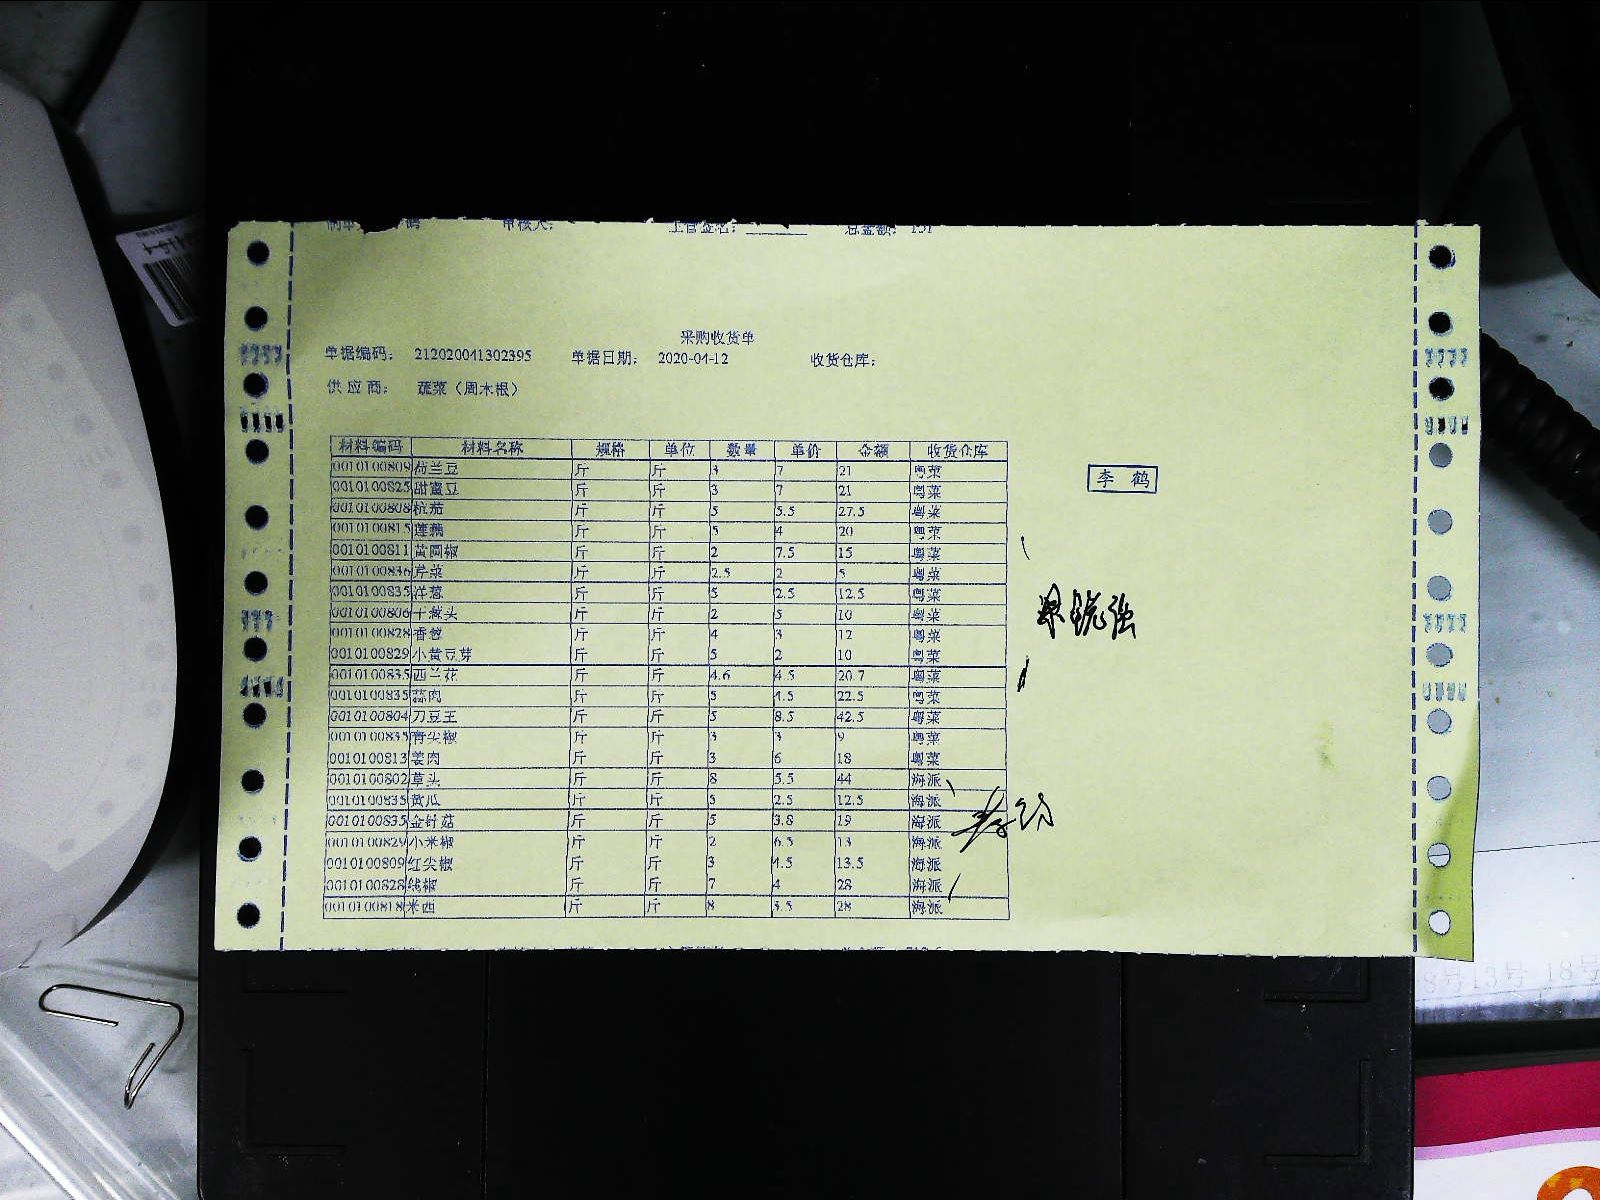 总金额: 131
采购收货单
单据编码: 212020041302395 单据日期: 2020-04-12 收货仓库:
供应商: 蔬菜(周木根)
材料编码 材料名称 规格 单位 数量 单价 金额 收货仓库
0010100809 荷兰豆 斤 斤 3 7 21 粤菜
李 鹤
0010100825 甜蜜豆 斤 斤 3 7 21 粤菜
0010100808 杭茄 斤 斤 5 5.5 27.5 粤菜
0010100815 莲藕 斤 斤 5 4 20 粤菜
0010100811 黄圆椒 斤 斤 2 7.5 15 粤菜
0010100836 芹菜 斤 斤 2.5 2 5 粤菜
0010100835 洋葱 斤 斤 5 2.5 12.5 粤菜
0010100806 干葱头 斤 斤 2 5 10 粤菜
0010100828 香葱 斤 斤 4 3 12 粤菜
0010100829 小黄豆芽 斤 斤 5 2 10 粤菜
0010100835 西兰花 斤 斤 4.6 4.5 20.7 粤菜
0010100835 蒜肉 斤 斤 5 4.5 22.5 粤菜
0010100804 刀豆王 斤 斤 5 8.5 42.5 粤菜
0010100835 青尖椒 斤 斤 3 3 9 粤菜
0010100813 姜肉 斤 斤 3 6 18 粤菜
0010100802 草头 斤 斤 8 5.5 44 海派
0010100835 黄瓜 斤 斤 5 2.5 12.5 海派
0010100835 金针菇 斤 斤 5 3.8 19 海派
0010100829 小米椒 斤 斤 2 6.5 13 海派
0010100809 红尖椒 斤 斤 3 4.5 13.5 海派
0010100828 线椒 斤 斤 7 4 28 海派
0010100818 米西 斤 斤 8 3.5 28 海派